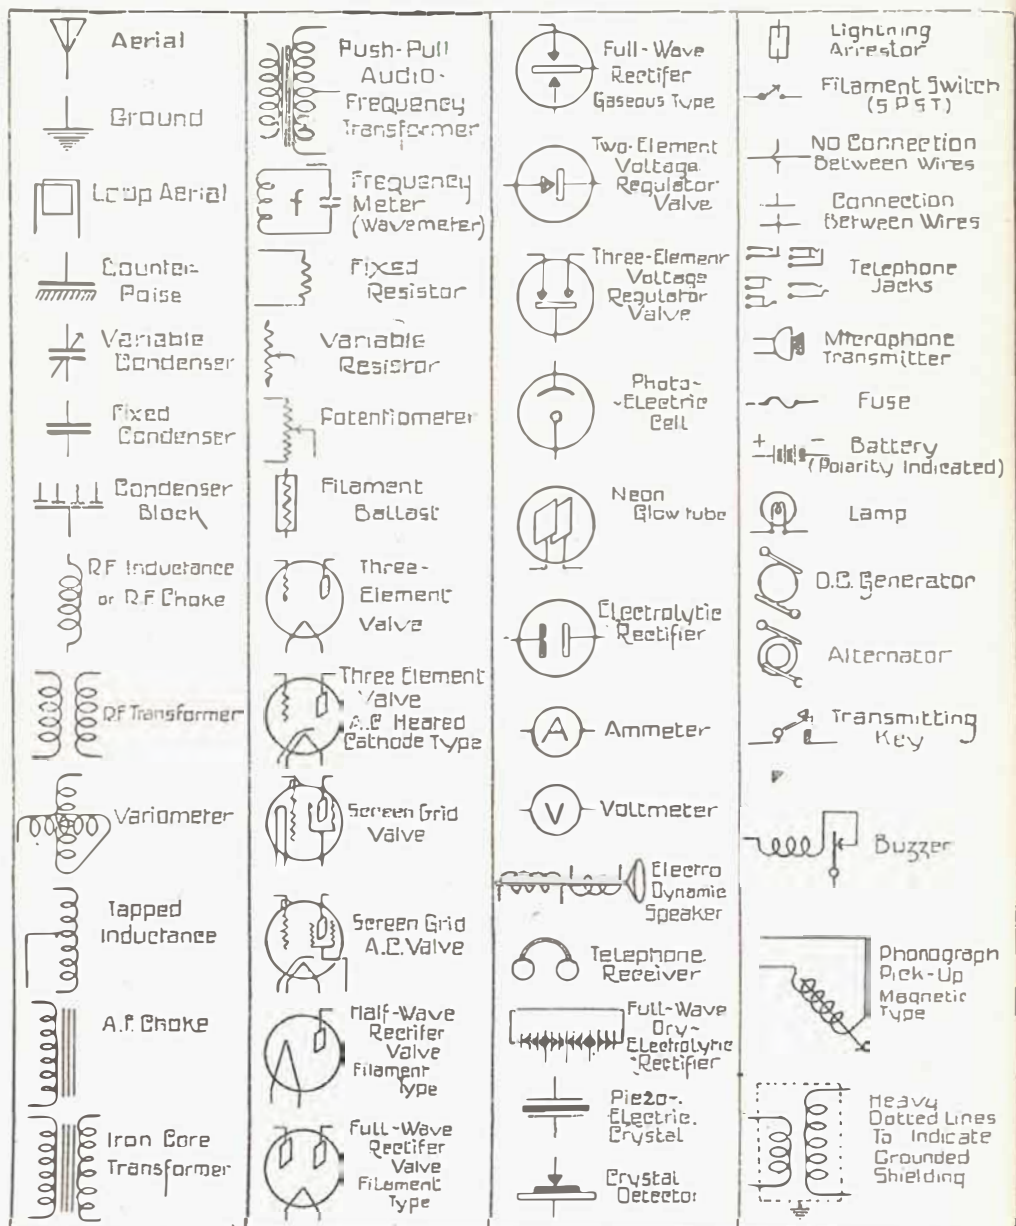 Aerial
Ground
Loop Aerial
Counter-
Poise
Variable
Condenser
Fixed
Condenser
Condenser
Block
R.F. Inductance
or R.F. Choke
R.F. Transformer
Variometer
Tapped
Inductance
A.F. Choke
Iron Core
Transformer
Push-Pull
Audio-
Frequency
Transformer
f
Frequency
Meter
(Wavemeter)
Fixed
Resistor
Variable
Resistor
Potentiometer
Filament
Ballast
Three-
Element
Valve
Three Element
Valve
A.C. Heated
Cathode Type
Screen Grid
Valve
Screen Grid
A.C. Valve
Half-Wave
Rectifer
Valve
Filament
Type
Full-Wave
Rectifer
Valve
Filament
Type
Full-Wave
Rectifer
Gaseous Type
Two-Element
Voltage
Regulator
Valve
Three-Element
Voltage
Regulator
Valve
Photo-
-Electric
Cell
Neon
Glow tube
Electrolytic
Rectifier
A
Ammeter
V
Voltmeter
Electro
Dynamic
Speaker
Telephone
Receiver
Full-Wave
Dry-
Electrolytic
Rectifier
Piezo-
Electric
Crystal
Crystal
Detector
Lightning
Arrestor
Filament Switch
(S.P.S.T.)
No Connection
Between Wires
Connection
Between Wires
Telephone
Jacks
Microphone
Transmitter
Fuse
+ -
Battery
(Polarity Indicated)
Lamp
D.C. Generator
Alternator
Transmitting
Key
Buzzer
Phonograph
Pick-Up
Magnetic
Type
Heavy
Dotted Lines
To Indicate
Grounded
Shielding